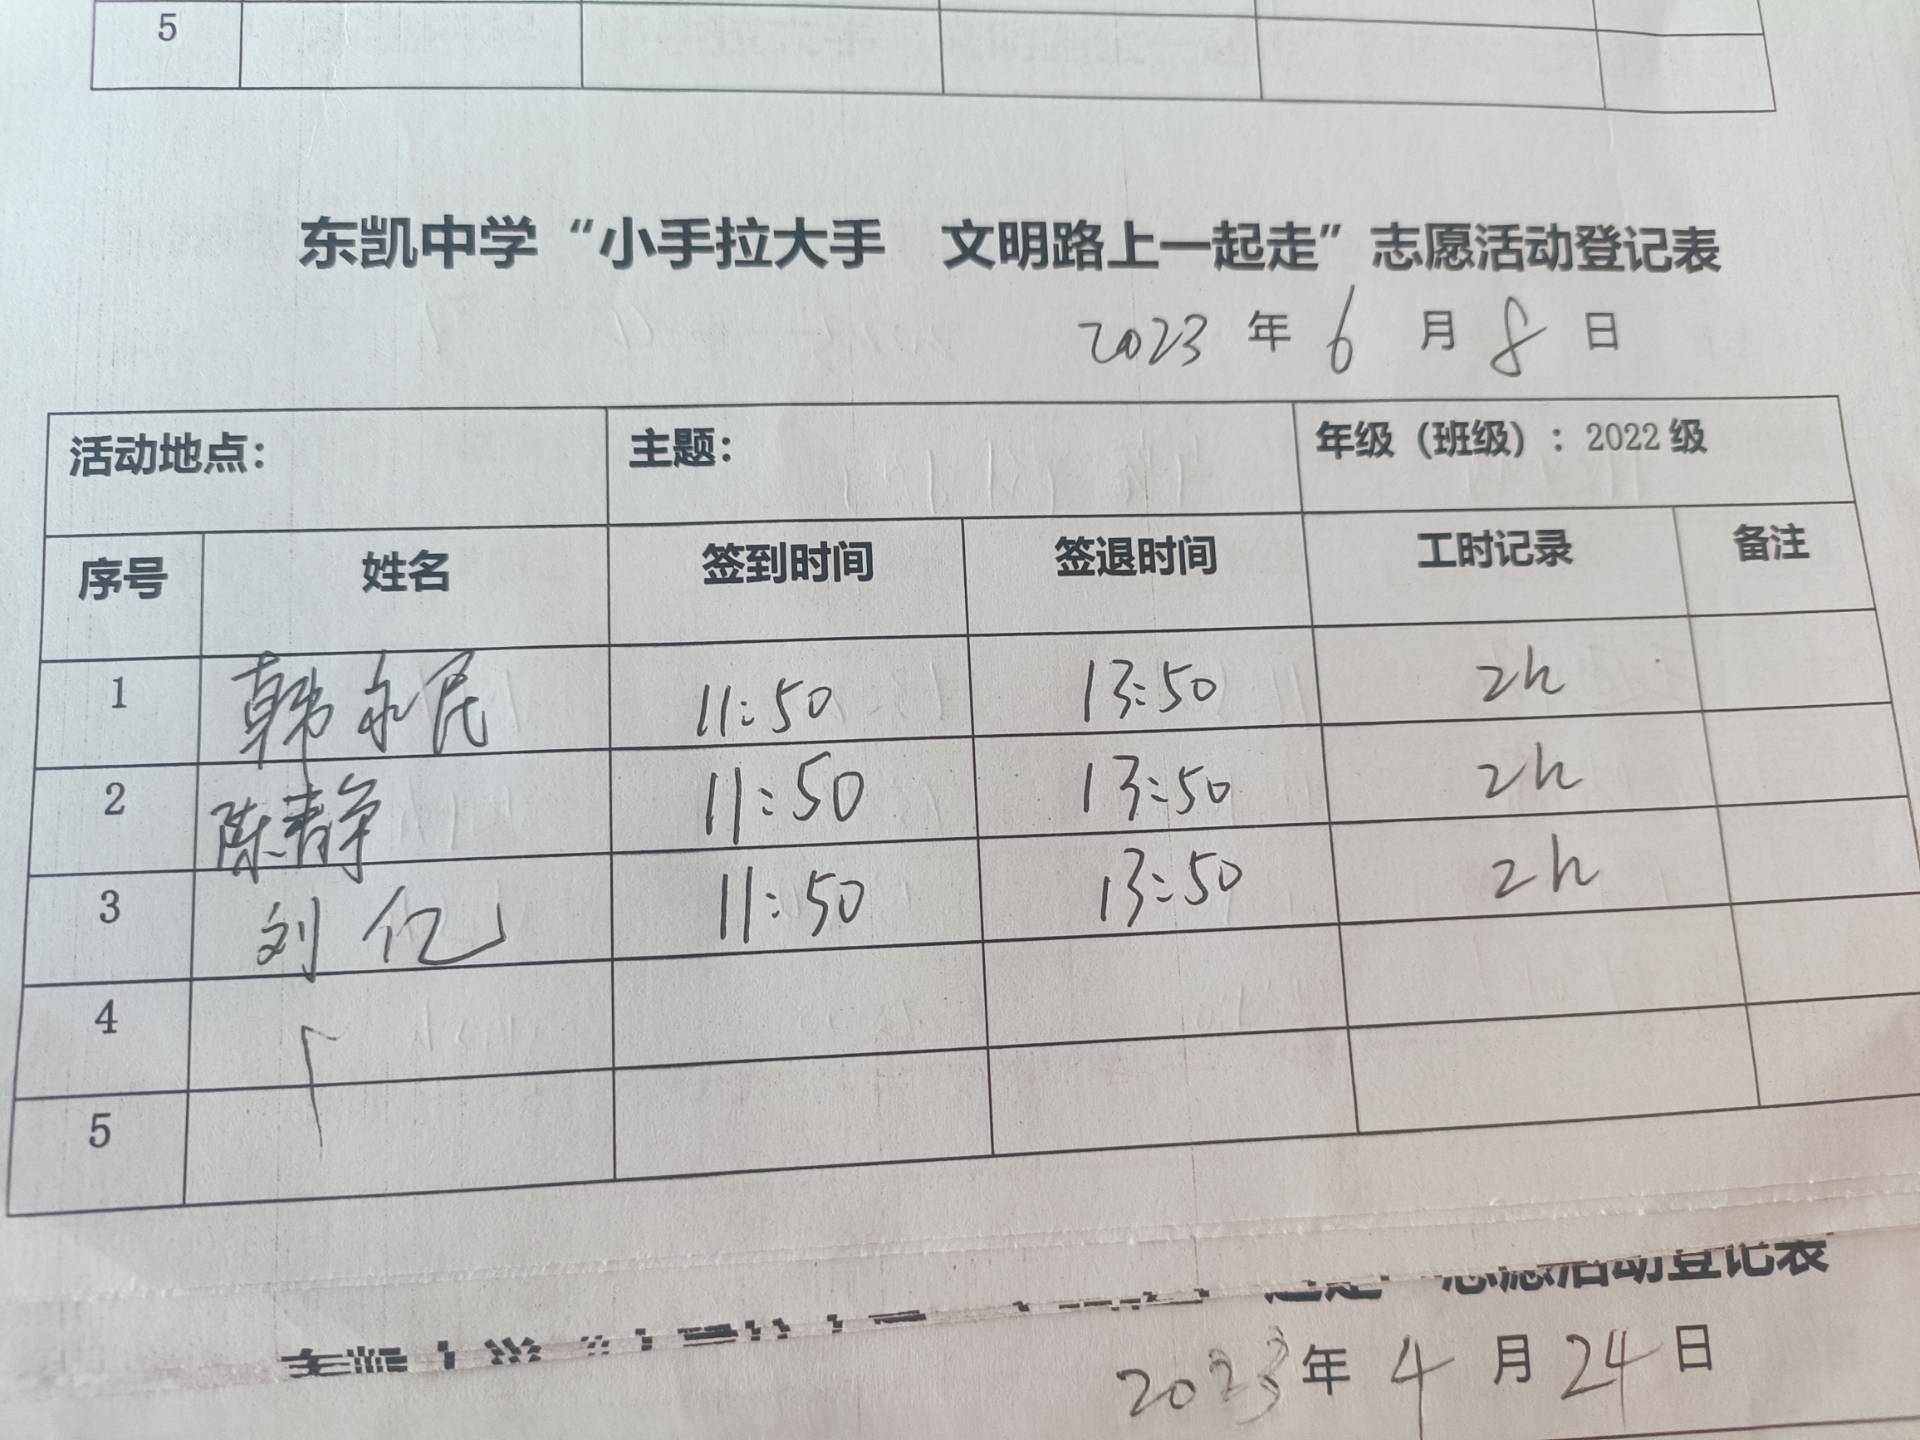 5
东凯中学“小手拉大手 文明路上一起走”志愿活动登记表
2023 年 6 月 8 日
活动地点： 主题： 年级（班级）：2022级
序号 姓名 签到时间 签退时间 工时记录 备注
1 韩永民 11:50 13:50 2h
2 陈静 11:50 13:50 2h
3 刘亿 11:50 13:50 2h
4
5
志愿活动登记表
2023 年 4 月 24 日